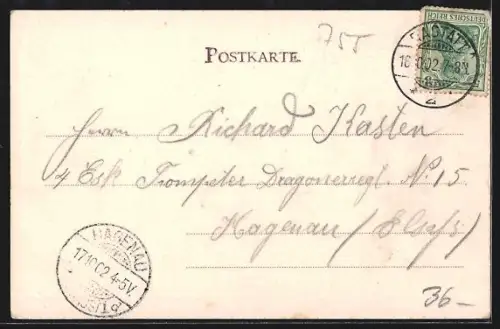 755
DEUTSCHES REICH
RASTATT
16 02 7-8V
2
POSTKARTE.
Herrn Richard Kasten
4 Esk Trompeter Dragonerregt. No 15
Hagenau / Elsaß /
HAGENAU
17 10 02 4-5V.
36-